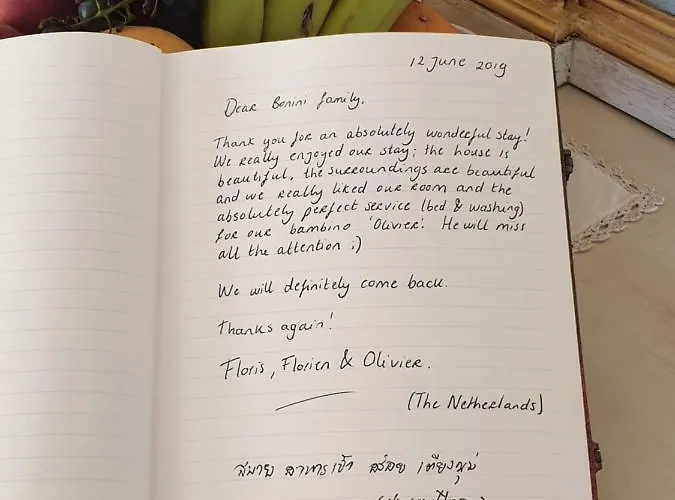 12 June 2019
Dear Bonini family,
Thank you for an absolutely wonderful stay!
We really enjoyed our stay; the house is
beautiful, the surroundings are beautiful
and we really liked our room and the
absolutely perfect service (bed & washing)
for our bambino 'Olivier'. He will miss
all the attention ;)
We will definitely come back.
Thanks again!
Floris, Florien & Olivier.
(The Netherlands)
สบาย อาหารเช้า อร่อย เตียงนุ่ม